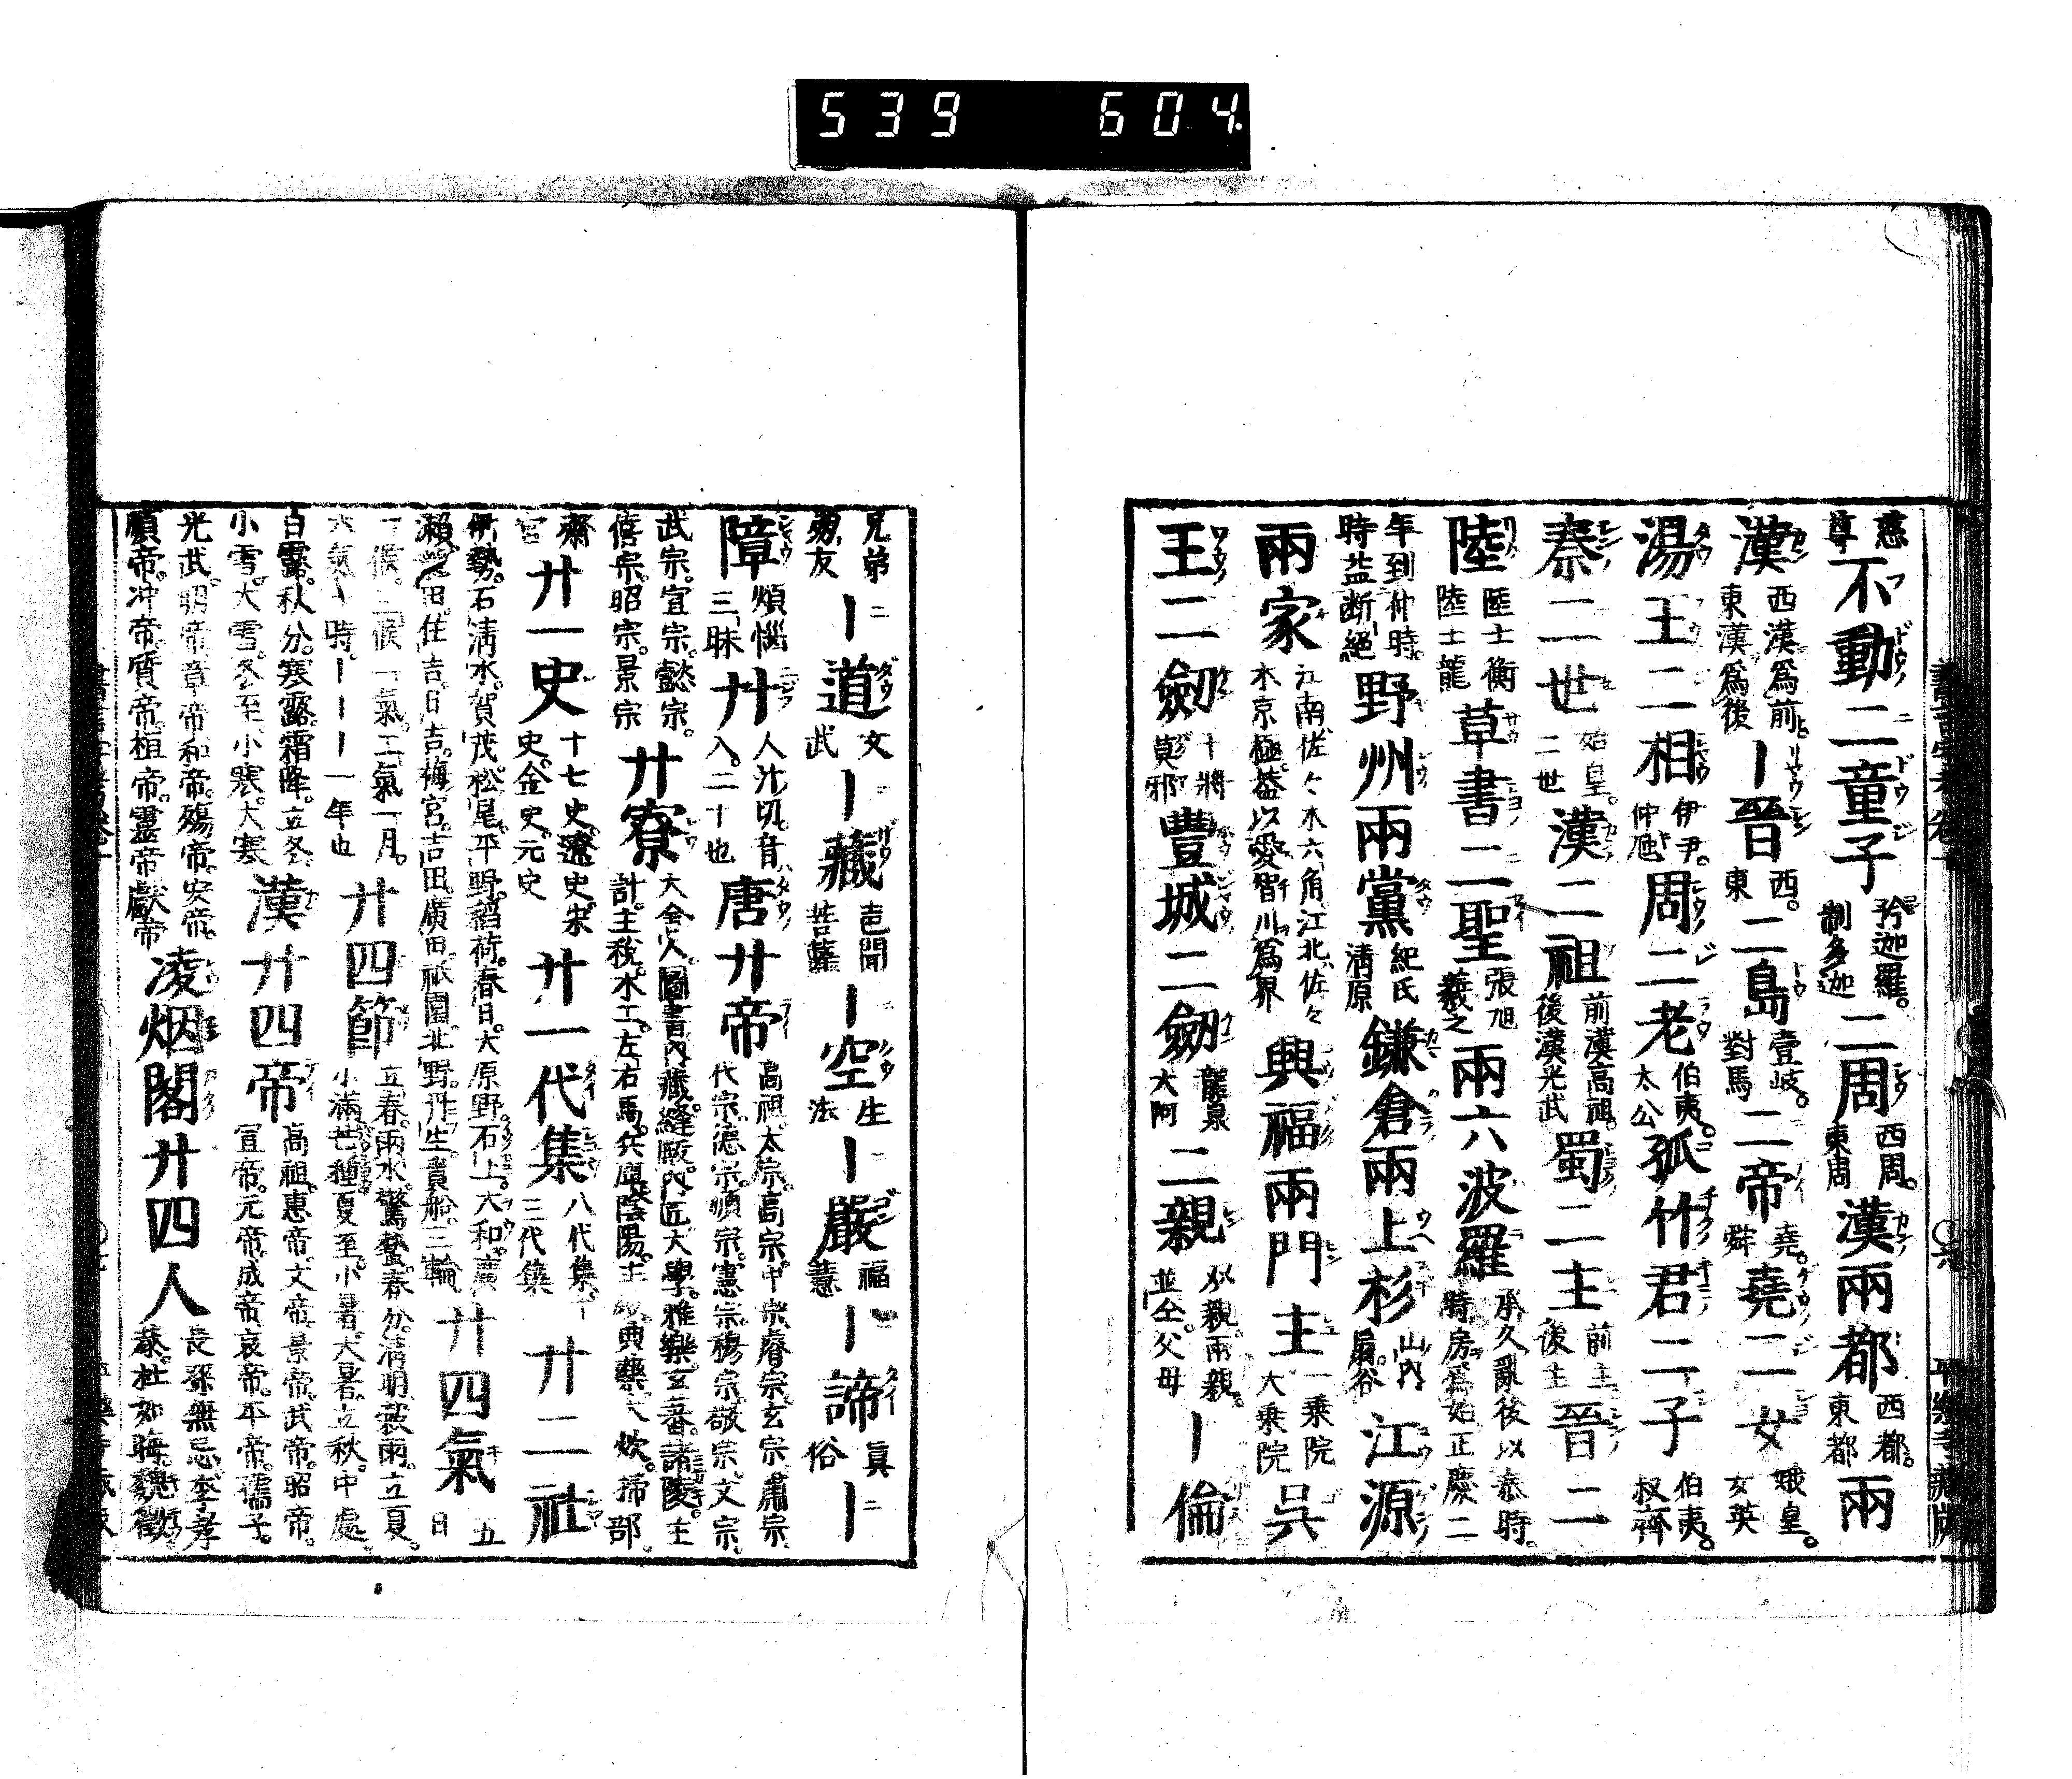 539 604.
慈尊 不動二童子 矜迦羅。制多迦 二周 西周。東周 漢兩都 西都。東都 兩
漢 西漢爲前。東漢爲後 ー晉 西。東 二島 壹岐。對馬 二帝 堯。舜 堯二女 娥皇。女英
湯王二相 伊尹。仲虺 周二老 伯夷。太公 孤竹君二子 伯夷。叔齊
秦二世 始皇。二世 漢二祖 前漢高祖。後漢光武 蜀二主 前主 後主 晉二
陸 陸士衡 陸士龍 草書二聖 張旭 羲之 兩六波羅 承久亂後以泰時。時房爲始正慶二
年到仲時。時益断絕 野州兩黨 紀氏 淸原 鎌倉兩上杉 山內 扇谷 江源
兩家 江南佐々木六角江北佐々木京極。益以愛智川爲界 興福兩門主 一乗院 大乗院 吳
王二劔 干將 莫邪 豐城二劔 龍泉 大阿 二親 双親兩親。並仝。父母 ー倫
兄弟 朋友 ー道 文 武 ー藏 声聞 菩薩 ー空 生 法 ー嚴 福 慧 ー諦 眞 俗 ー
障 煩惱 三昧 廾 人汁切。音入。二十也 唐廿帝 高祖。太宗。高宗。中宗。睿宗。玄宗。肅宗 代宗。德宗。順宗。憲宗。穆宗。敬宗。文宗。
武宗。宣宗。懿宗。僖宗。昭宗。景宗 廿寮 大舍人。圖書。內藏。縫殿。內匠。大學。雅樂。玄蕃。諸陵。主計。主稅。木工。左右馬。兵庫。陰陽。主殿。典藥。大炊。掃部。
齋宮 廿一史 十七史。遼史。宋史。金史。元史 廿一代集 八代集。十三代集 廿二社
伊勢。石淸水。賀茂。松尾。平野。稻荷。春日。大原野。石上。大和。廣瀨。龍田。住吉。日吉。梅宮。吉田。廣田。祇園。北野。丹生。貴船。三輪 廿四氣 五日
一候。三候一氣。二氣一月。六氣ー時。ーーー一年也 廿四節 立春。雨水。驚蟄。春分。淸明。穀雨。立夏。小滿。芒種。夏至。小暑。大暑。立秋。中處。
白露。秋分。寒露。霜降。立冬。小雪。大雪。冬至。小寒。大寒 漢廿四帝 高祖。惠帝。文帝。景帝。武帝。昭帝。宣帝。元帝。成帝。哀帝。平帝。孺子。
光武。明帝。章帝。和帝。殤帝。安帝。順帝。冲帝。質帝。桓帝。靈帝。獻帝 凌烟閣廿四人 長孫無忌。李孝恭。杜如晦。魏徵